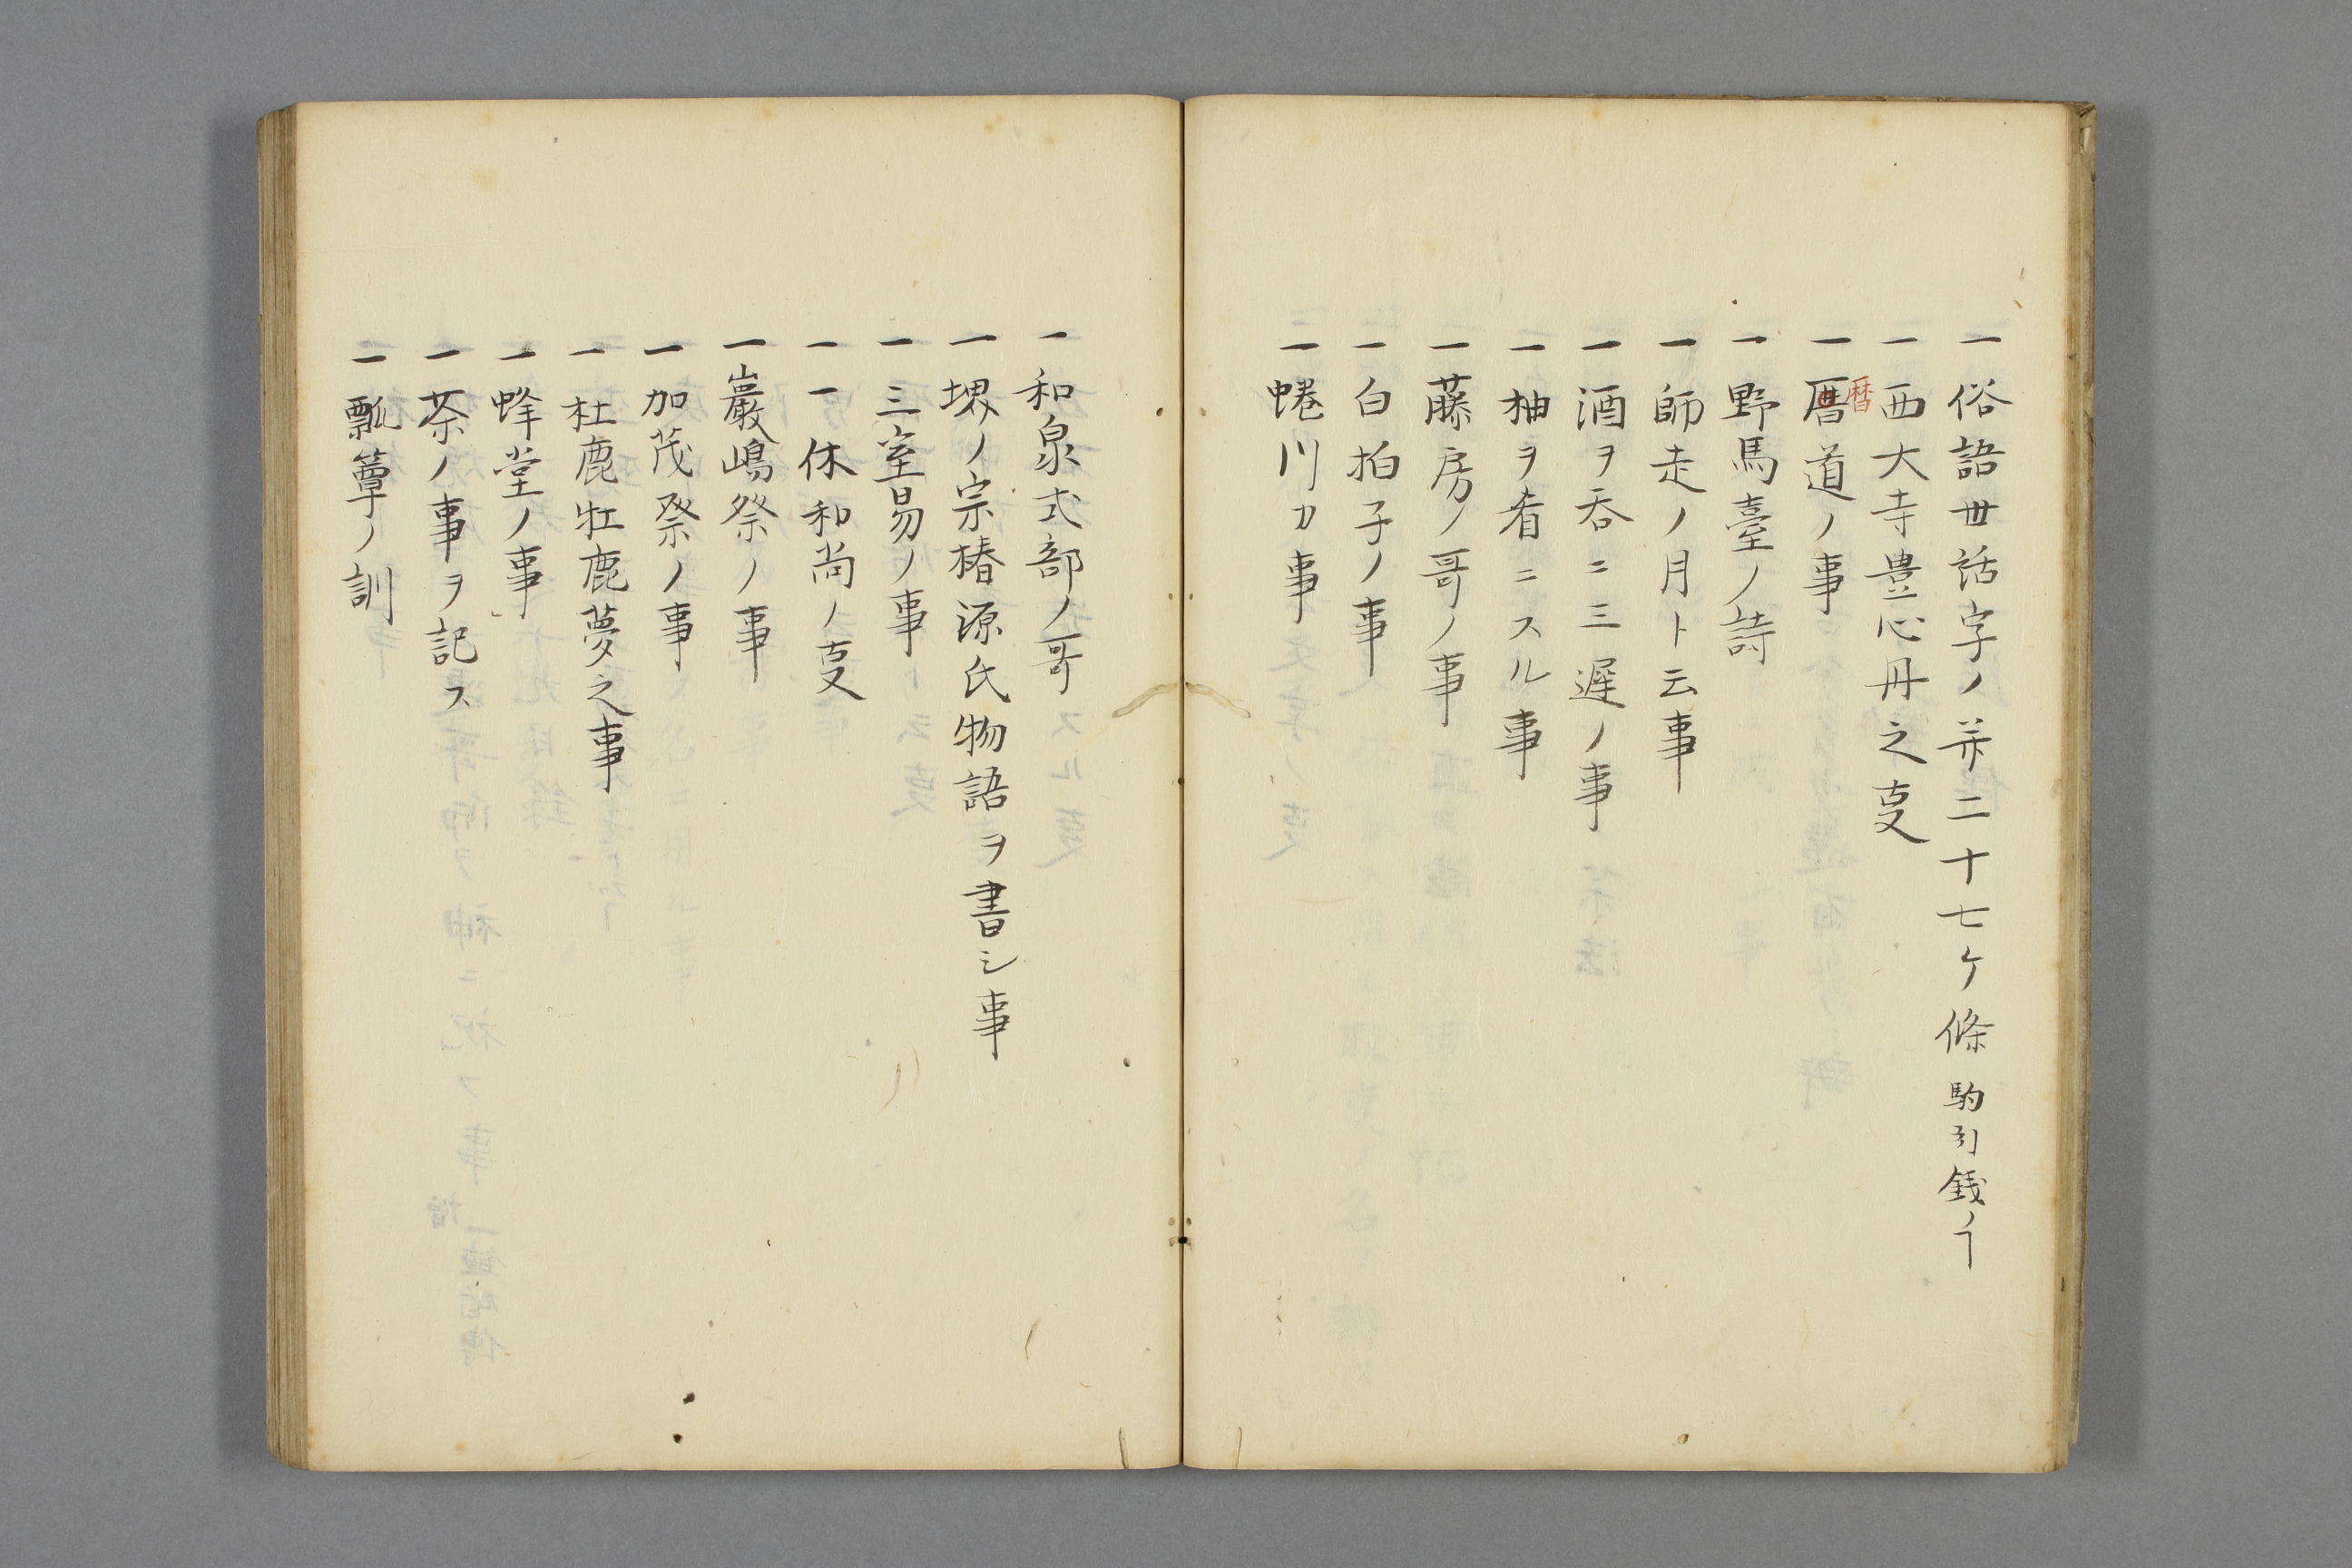 一 俗語世話字ノ并二十七ケ條 駒引錢ノヿ
一 西大寺豊心丹之叓
一 暦道ノ事
暦
一 野馬臺ノ詩
一 師走ノ月ト云事
一 酒ヲ呑ニ三遅ノ事
一 柚ヲ肴ニスル事
一 藤房ノ哥ノ事
一 白拍子ノ事
一 蜷川カ事
一 和泉式部ノ哥
一 堺ノ宗椿源氏物語ヲ書シ事
一 三室昜ノ事
一 一休和尚ノ叓
一 巖嶋祭ノ事
一 加茂祭ノ事
一 杜鹿牡鹿夢之事
一 蜂堂ノ事
一 茶ノ事ヲ記ス
一 瓢簟ノ訓